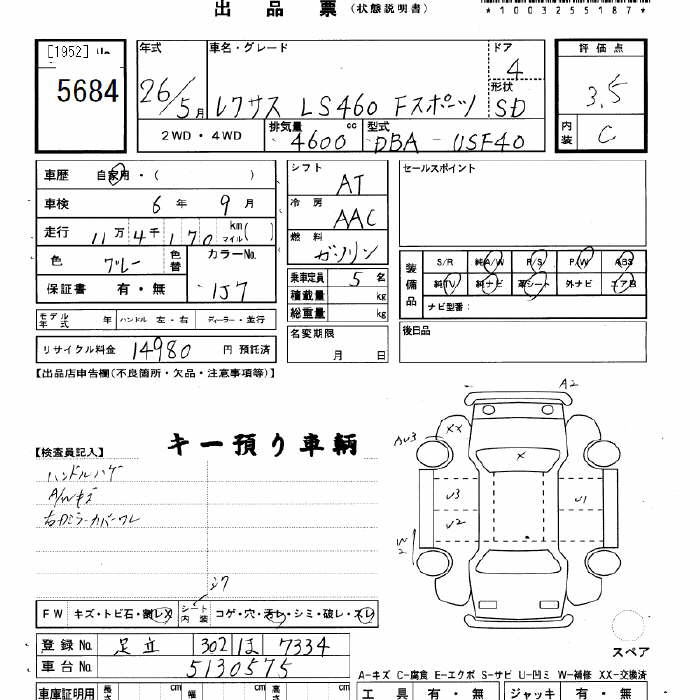 出品票(状態説明書)
*1003255187*
[1952]
5684
年式 車名・グレード ドア 評価点
26/5月 レクサス LS460 Fスポーツ 4 3.5
形状 SD
2WD・4WD 排気量 4600 cc 型式 DBA-USF40 内装 C
車歴 自家用・( )
車検 6年 9月
走行 11万4千170 km マイル( )
色 グレー 色替 カラーNo. 1J7
保証書 有・無
シフト AT
冷房 AAC
燃料 ガソリン
乗車定員 5名
積載量 kg
総重量 kg
セールスポイント
装備品 S/R 純A/W P/S P/W ABS
純TV 純ナビ 革シート 外ナビ エアB
ナビ型番:
モデル年式 年 ハンドル 左・右 ディーラー・並行
名変期限 月 日
後日品
リサイクル料金 14980 円 預託済
【出品店申告欄(不良箇所・欠品・注意事項等)】
キー預り車輌
【検査員記入】
ハンドルハゲ
A/Wキズ
右ドミラーカバーワレ
A2
AU3 XX X
U3 U1
U2
W2
シワ
FW キズ・トビ石・割レX シート内装 コゲ・穴・汚レ・シミ・破レ・スレ
登録No. 足立 302 ほ 7334
車台No. 5130575
スペア
A-キズ C-腐食 E-エクボ S-サビ U-凹ミ W-補修 XX-交換済
車庫証明用 長さ cm 幅 cm 高さ cm
工具 有・無 ジャッキ 有・無